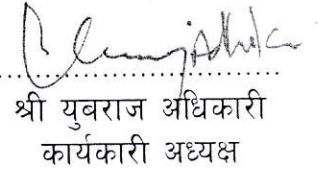 श्री युवराज अधिकारी
कार्यकारी अध्यक्ष